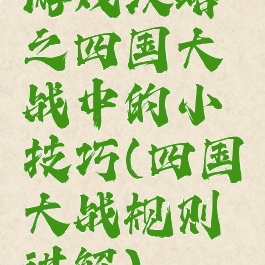 游戏攻略
之四国大
战中的小
技巧(四国
大战规则
讲解)